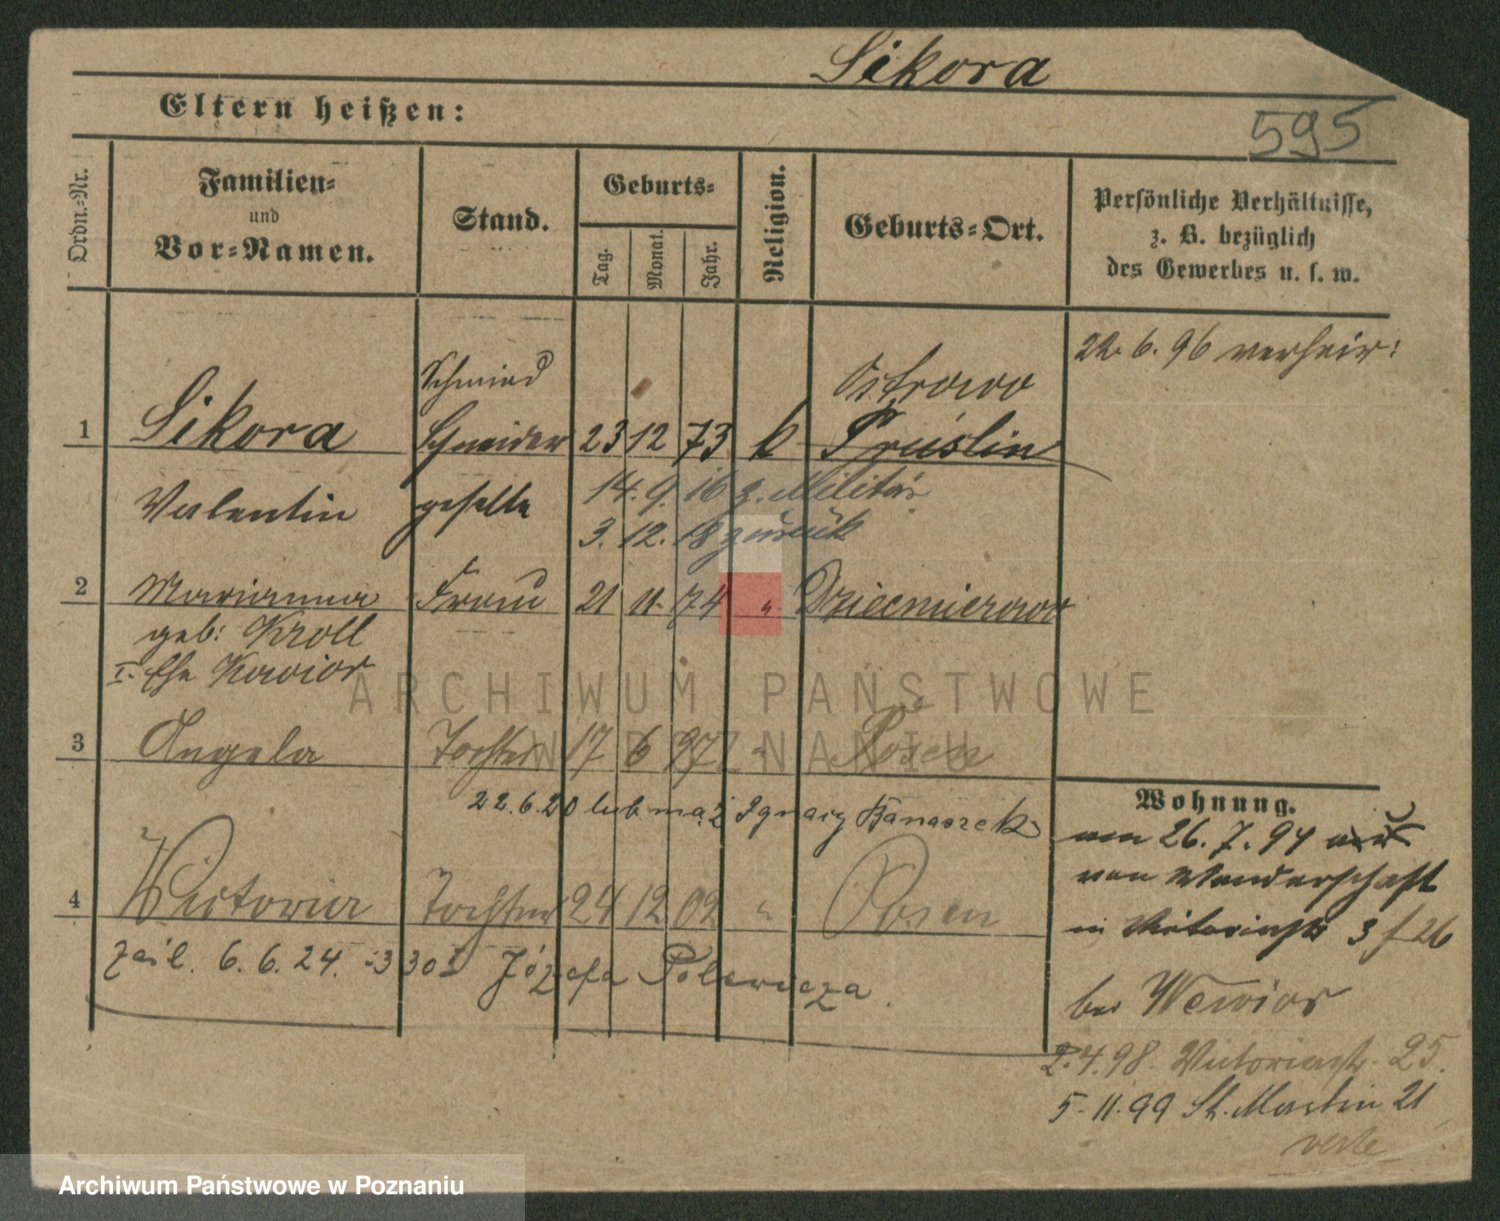 Sikora
Eltern heißen:
595
Ordn.-Nr.
Familien-
und
Vor-Namen.
Stand.
Geburts-
Tag.
Monat.
Jahr.
Religion.
Geburts-Ort.
Persönliche Verhältnisse,
z. B. bezüglich
des Gewerbes u. s. w.
22. 6. 96 verheir:
Schmied
Ostrowo
1 Sikora Schneider 23 12 73 k
Valentin geselle 14. 9. 16 z. Militär
3. 12. 18 zurück
2 Marianna Frau 21 11. 74 " Dziecmierowo
geb: Kroll
I. Ehe Kawior
ARCHIWUM PAŃSTWOWE
W POZNANIU
3 Angela Tochter 17 6 97 " Posen
22.6.20 lub mąż Ignacy Banaszek
4 Victoria Tochter 24 12 02 " Posen
zaśl. 6. 6. 24. Józefa
Wohnung.
26. 7. 94
von Wanderschaft
in Victoriastr
bei
2.4.98. Victoriastr. 25.
5. 11. 99 St. Martin 21
verte
Archiwum Państwowe w Poznaniu